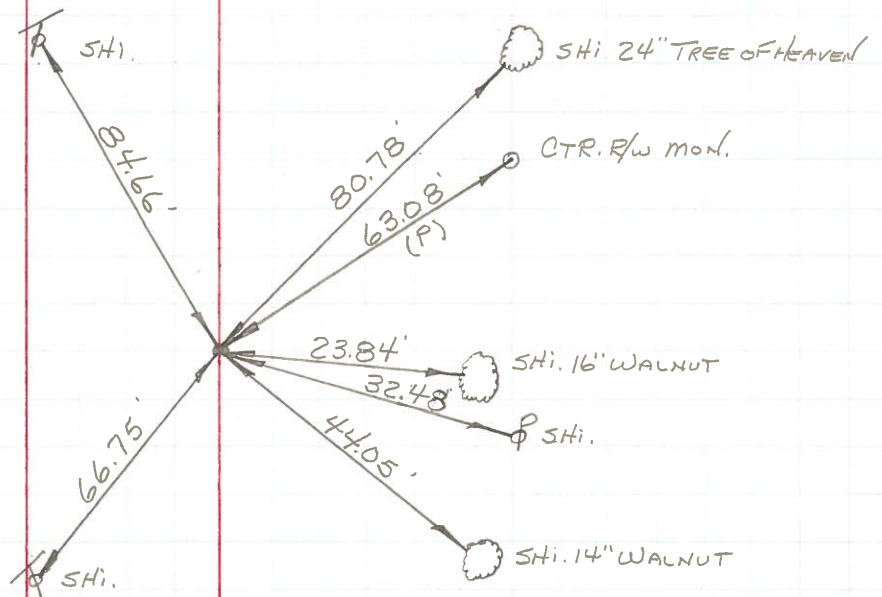 SHi.
SHi 24" TREE OF HEAVEN
84.66'
80.78'
CTR. R/W MON.
63.08'
(P)
23.84'
SHi. 16" WALNUT
32.48'
SHi.
44.05'
66.75'
SHi. 14" WALNUT
SHi.